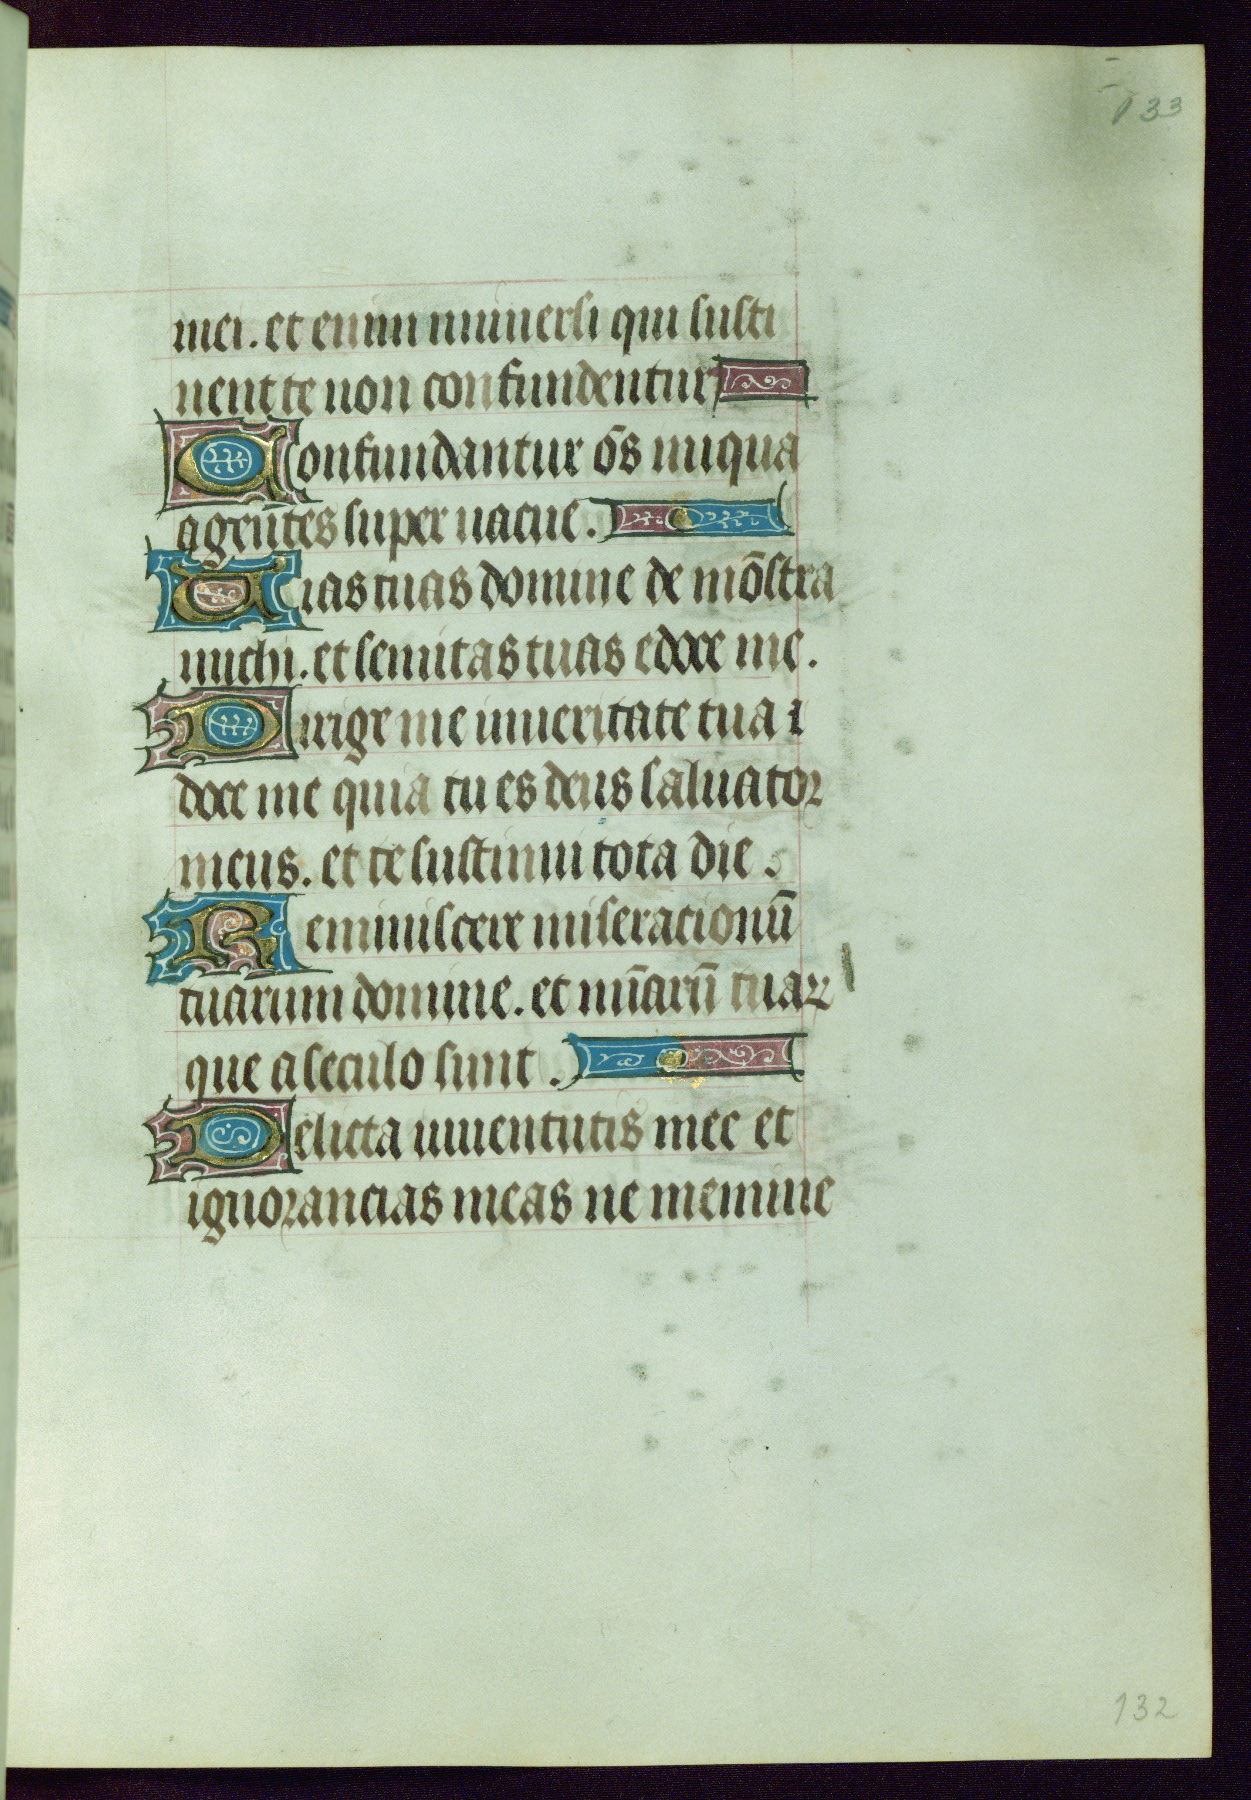 133
mei. et enim uniuersi qui susti
nent te non confundentur
Confundantur o͞s iniqua
age͞ntes super uacue.
Uias tuas domine de mo͞stra
michi. et semitas tuas edoce me.
Dirige me in ueritate tua ⁊
doce me quia tu es deus saluator
meus. et te sustinui tota die.
Reminiscere miseracionu͞
tuarum domine. et mi͞aru͞ tuaꝝ
que a seculo sunt.
Delicta iuuentutis mee et
ignorancias meas ne memine
132